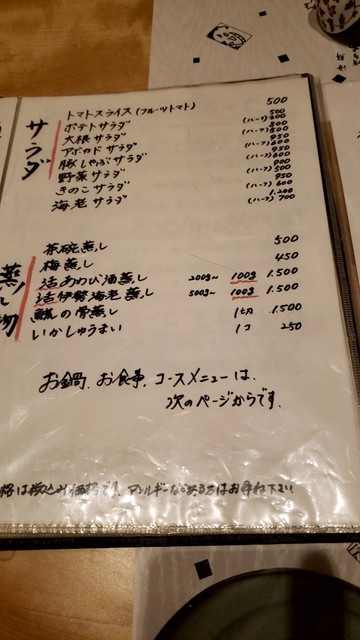 サラダ
トマトスライス(フルーツトマト) 500
ポテトサラダ 500
(ハーフ) 300
大根サラダ 800
(ハーフ) 500
アボカドサラダ 950
(ハーフ) 600
豚しゃぶサラダ 950
(ハーフ) 600
野菜サラダ 900
(ハーフ) 500
きのこサラダ 950
(ハーフ) 600
海老サラダ 1.200
(ハーフ) 700
蒸し物
茶碗蒸し 500
梅蒸し 450
活あわび酒蒸し 200g~ 100g 1.500
活伊勢海老蒸し 500g~ 100g 1.500
の骨蒸し 1切 1.500
いかしゅうまい 1コ 250
お鍋、お食事、コースメニューは、
次のページからです。
格は税込み価格です。アレルギーなどがある方はお尋ね下さい